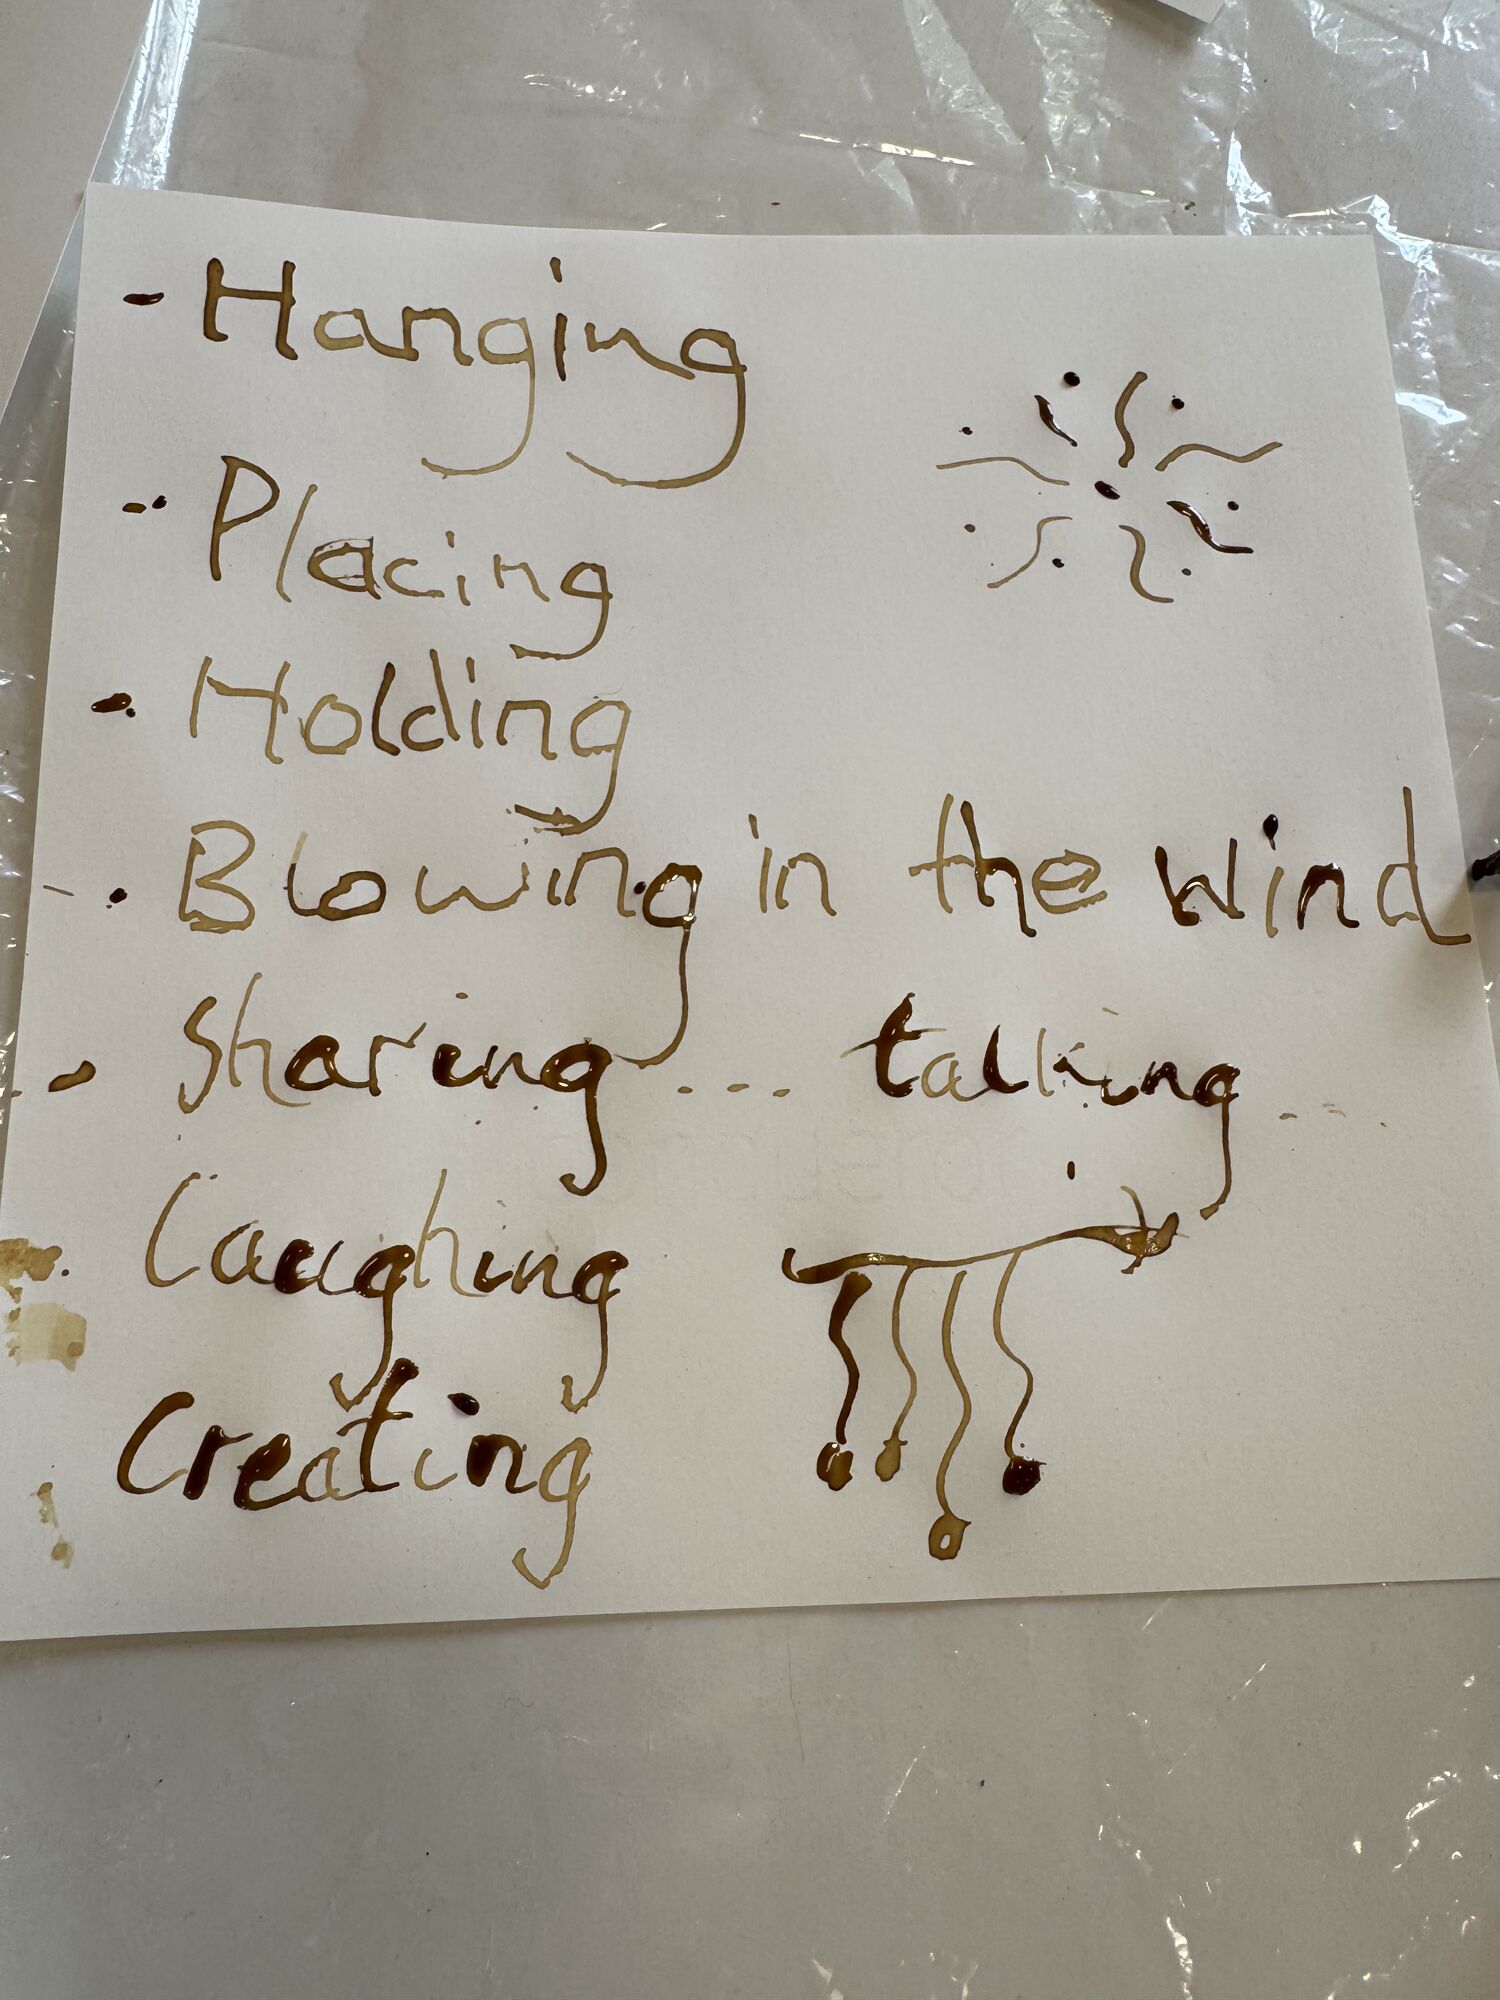 - Hanging
- Placing
- Holding
- Blowing in the wind
- Sharing ... talking ...
Laughing
Creating